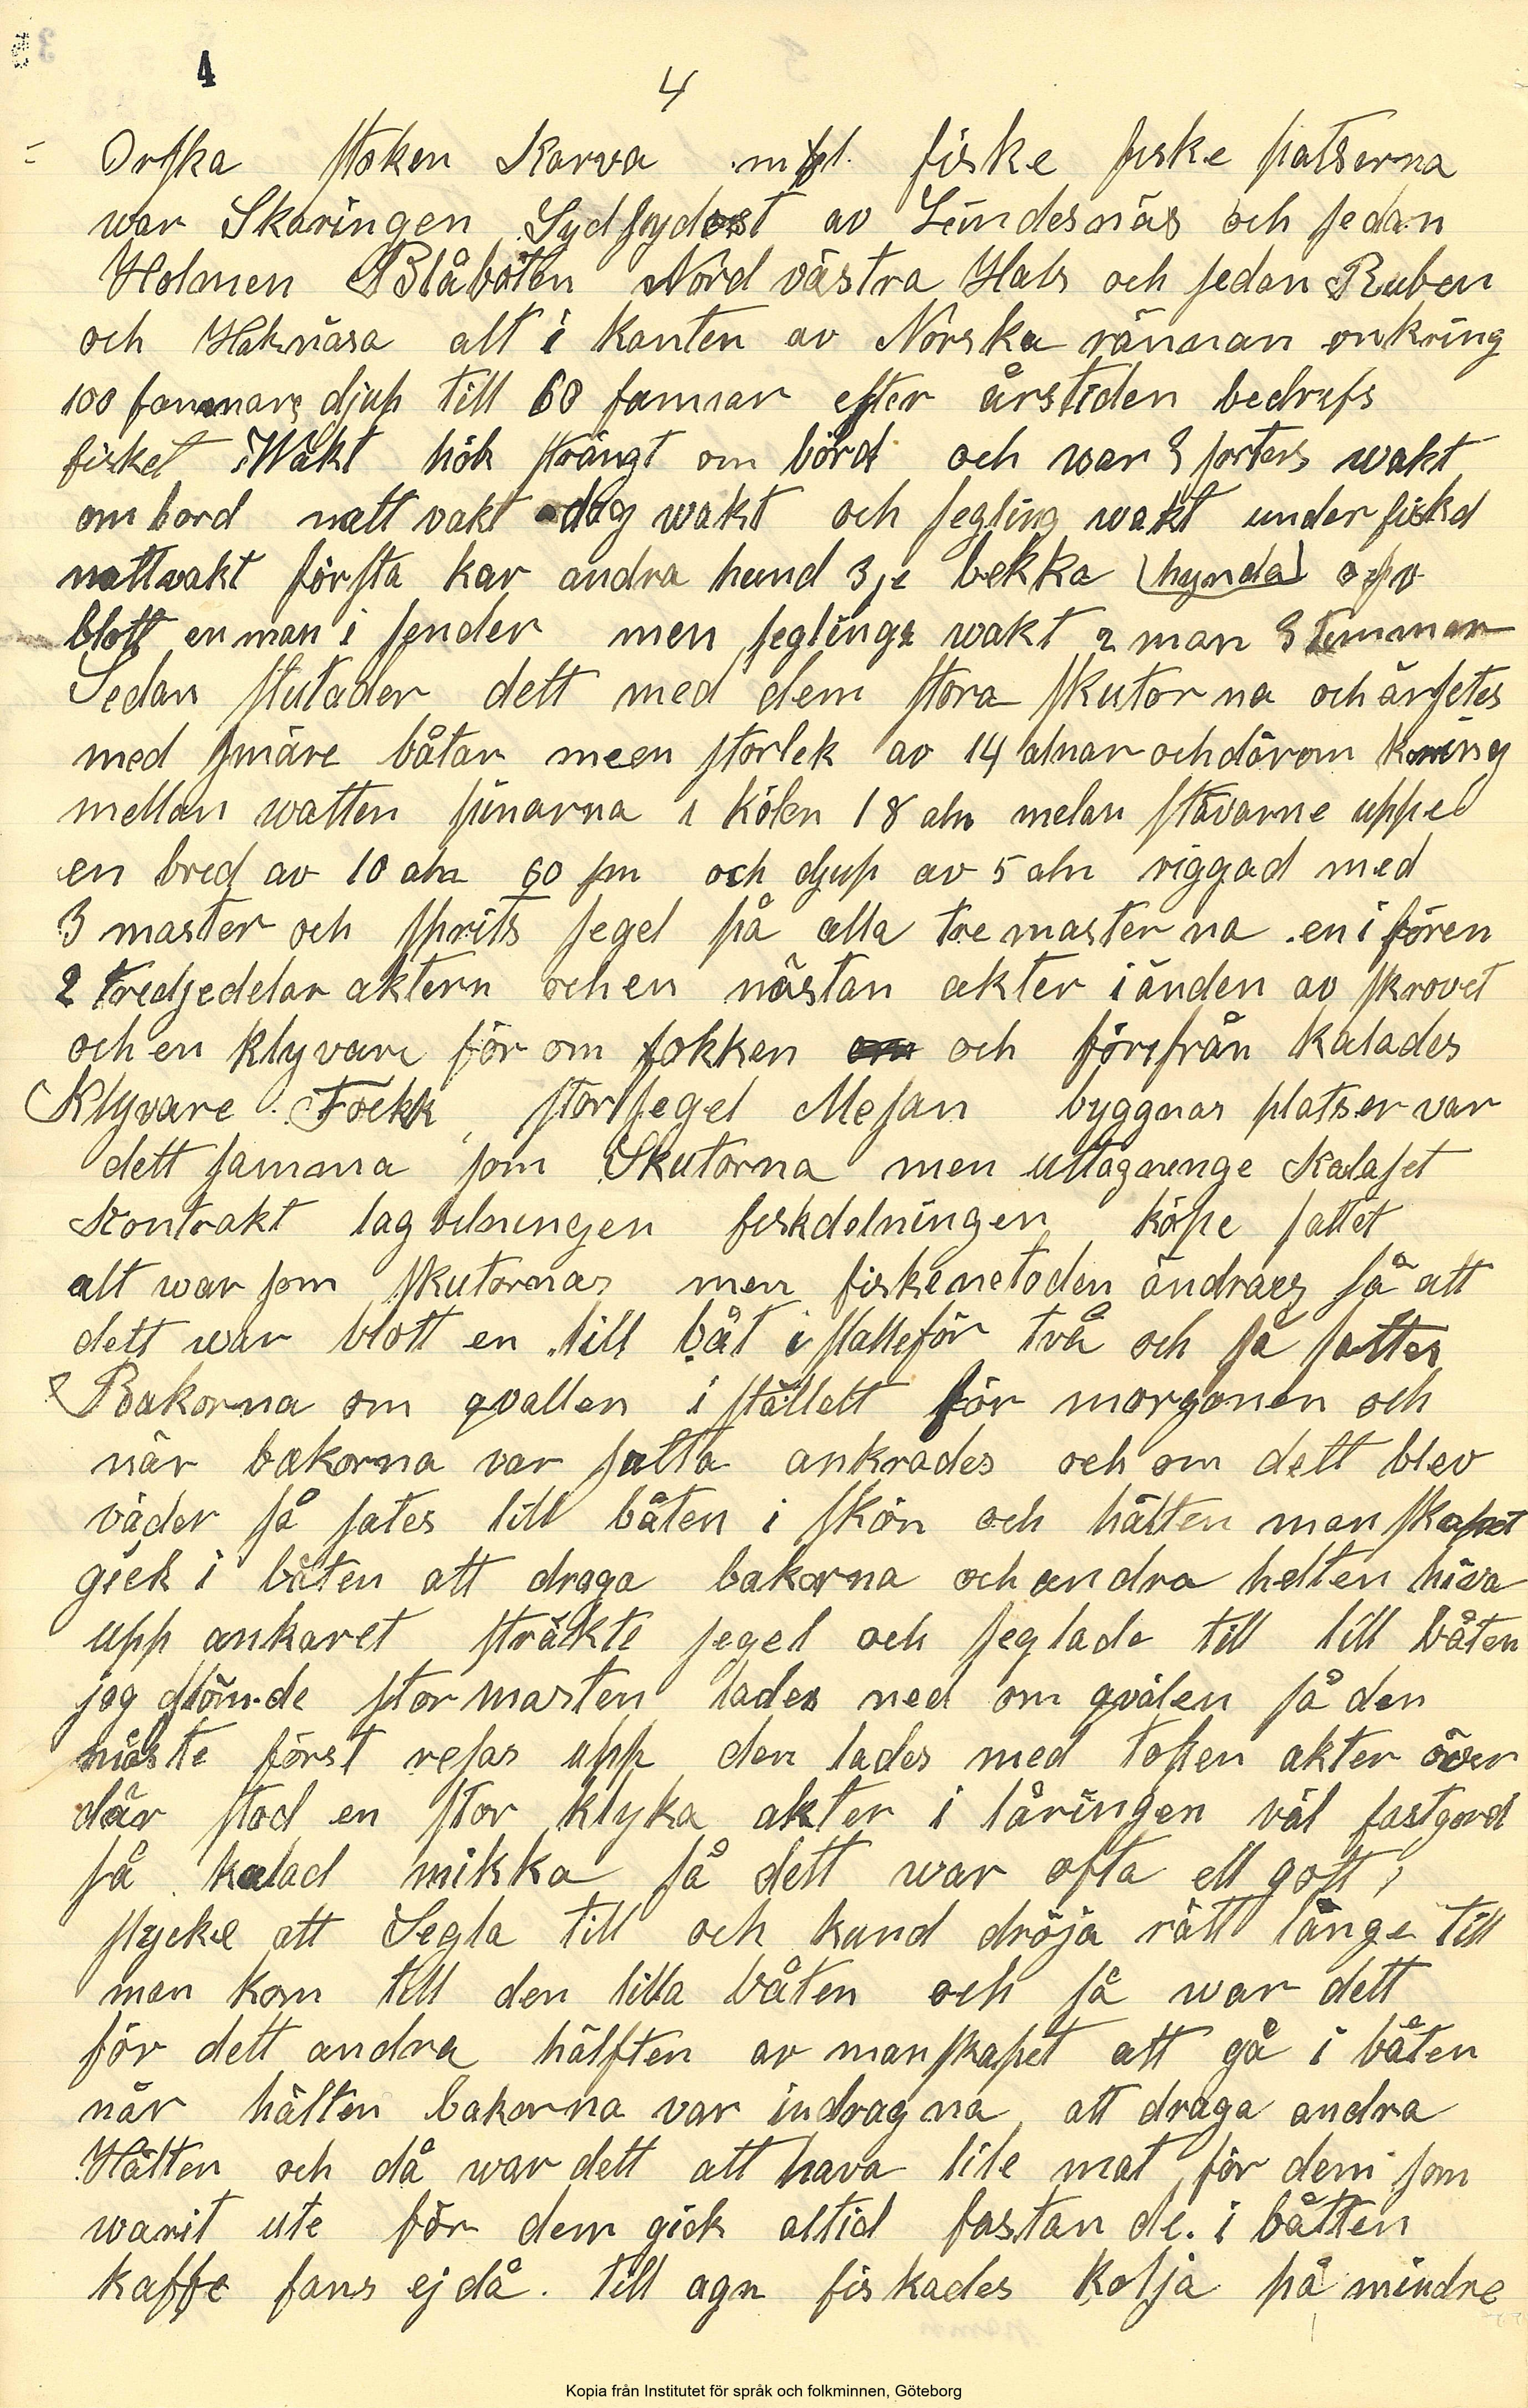 4
4
Orska stoken Karva m fl. fiske fiske platserna
war Skaringen Sydsydost av Lindesnäs och sedan
Holmen Blåbåten Nord västra Hals och sedan Ruben
och Haknäsa alt i kanten av Norska rännan onkring
100 famnars djup till 60 famnar efter årstiden bedrefs
fisket Wakt hök strängt om börd och war 3 sorters wakt
om bord natt vakt dag wakt och segling wakt under fisket
nattvakt första kar andra hund 3je bekka (hynda) osv
blott en man i sender men seglings wakt 2 man 3 timmar
Sedan slutader dett med dem stora skutor na och ärsetes
med smäre båtar meen storlek av 14 alnar och därom kring
mellan watten pinarna i kölen 18 aln melan stävarne uppe
en bred av 10 aln 60 fm och djup av 5 aln riggad med
3 master och sprits segel på alla tre master na en i fören
2 tredjedelar aktern och en nästan akter i änden av skrovet
och en klyvare för om fokken och förifrån kalades
Klyvare Fockk storsegel Mesan byggnas platser var
dett samma som Skutorna men uttagnenge Kalaset
Kontrakt lag delningen fiskdelningen köpe sattet
alt war som skutornas men fiskemetoden ändraes så att
dett war blott en lill båt i stalleför två och så sattes
Bakorna om qvallen i stället för morgonen och
när bakorna var satta ankrades och om dett blev
väder så sates lill båten i skön och hälten manskapet
gick i båten att draga bakorna och andra helten hiva
upp ankaret sträkte segel och seglade till lill båten
jag glömde stor masten lades ned om qvälen så den
måste först resas upp den lades med topen akter över
där stod en stor klyka akter i låringen väl fastgord
så kalad mikka så dett war ofta ett gott
stycke att Segla till och kund dröja rätt länge till
man kom till den lilla båten och så war dett
för dett andra hälften av manskapet att gå i båten
när hälten bakorna var indragna att draga andra
Hälten och då war dett att hava lite mat för dem som
warit ute för dem gick altid fastan de. i båtten
kaffe fans ej då. till agn fiskades kolja på mindre
Kopia från Institutet för språk och folkminnen, Göteborg